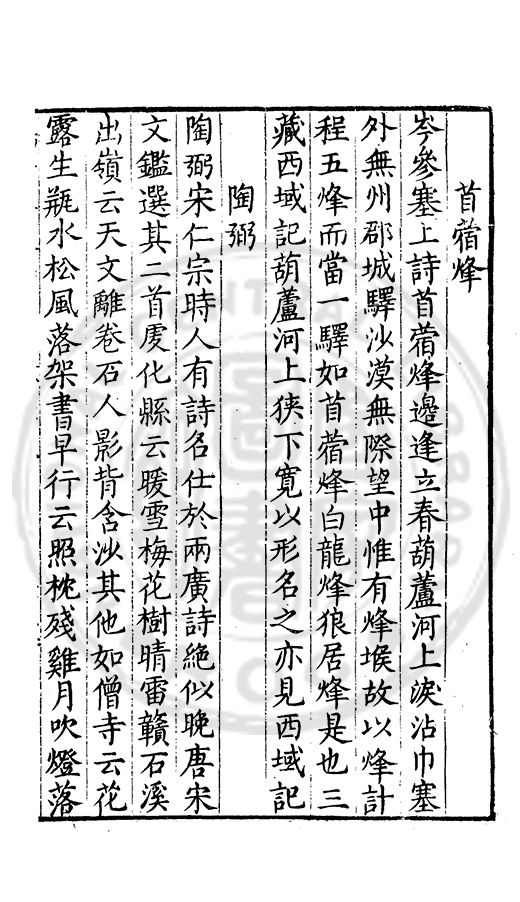 首蓿烽
岑參塞上詩首蓿烽邊逢立春葫蘆河上淚沾巾塞
外無州郡城驛沙漠無際望中惟有烽堠故以烽計
程五烽而當一驛如首蓿烽白龍烽狼居烽是也三
藏西域記葫蘆河上狹下寛以形名之亦見西域記
陶弼
陶弼宋仁宗時人有詩名仕於兩廣詩絶似晚唐宋
文鑑選其二首䖍化縣云暖雪梅花樹晴雷贛石溪
出嶺云天文離卷石人影背含沙其他如僧寺云花
露生瓶水松風落架書早行云照枕殘雞月吹燈落